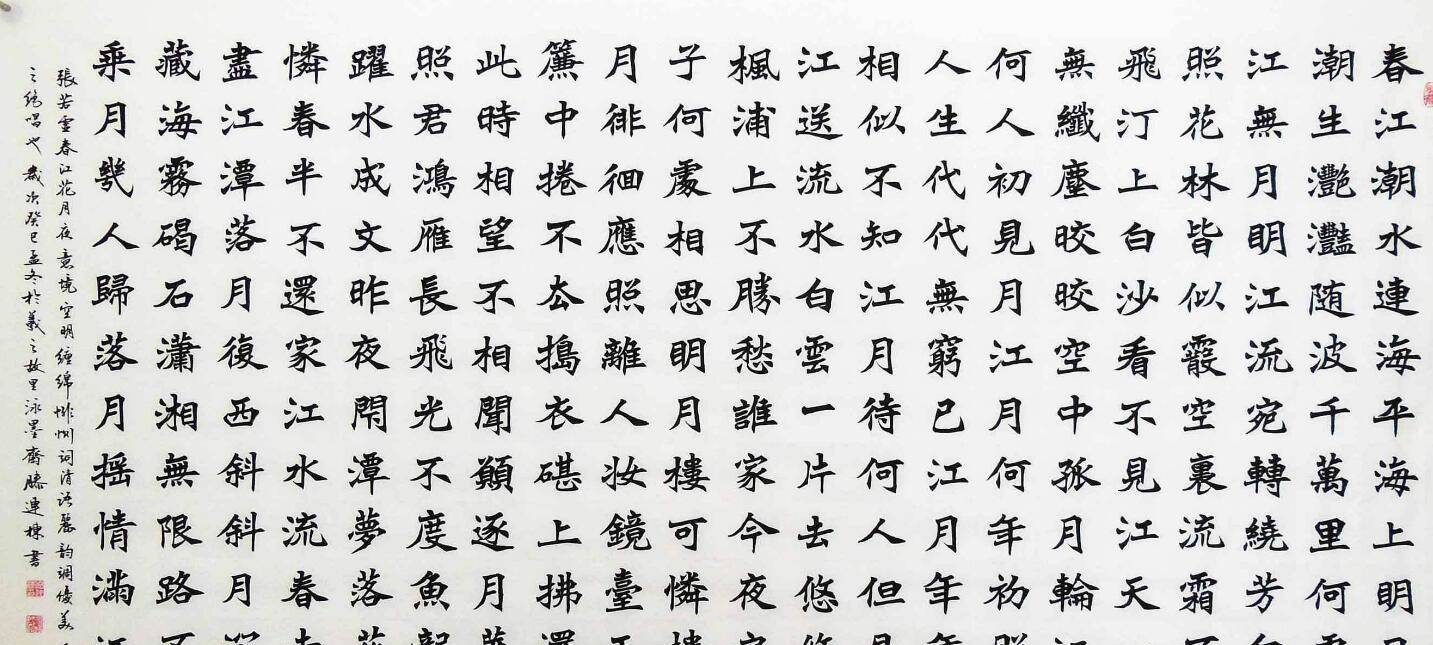 春江潮水連海平海上明
潮生灧灩随波千萬里何
江無月明江流宛轉繞芳
照花林皆似霰空裏流霜
飛汀上白沙看不見江天
無纖塵皎皎空中孤月輪
何人初見月江月何年初
人生代代無窮已江月年
相似不知江月待何人但
江送流水白雲一片去悠
楓浦上不勝愁誰家今夜
子何處相思明月樓可憐
月徘徊應照離人妝鏡臺
簾中捲不去搗衣碪上拂
此時相望不相聞願逐月
照君鴻雁長飛光不度魚
躍水成文昨夜閑潭夢落
憐春半不還家江水流春
盡江潭落月復西斜斜月
藏海霧碣石瀟湘無限路
乘月幾人歸落月摇情滿
張若虛春江花月夜意境空明纏綿悱惻词清语麗韵調優美
之绝唱也歲次癸巳孟冬於羲之故里泳墨齋滕連棟書